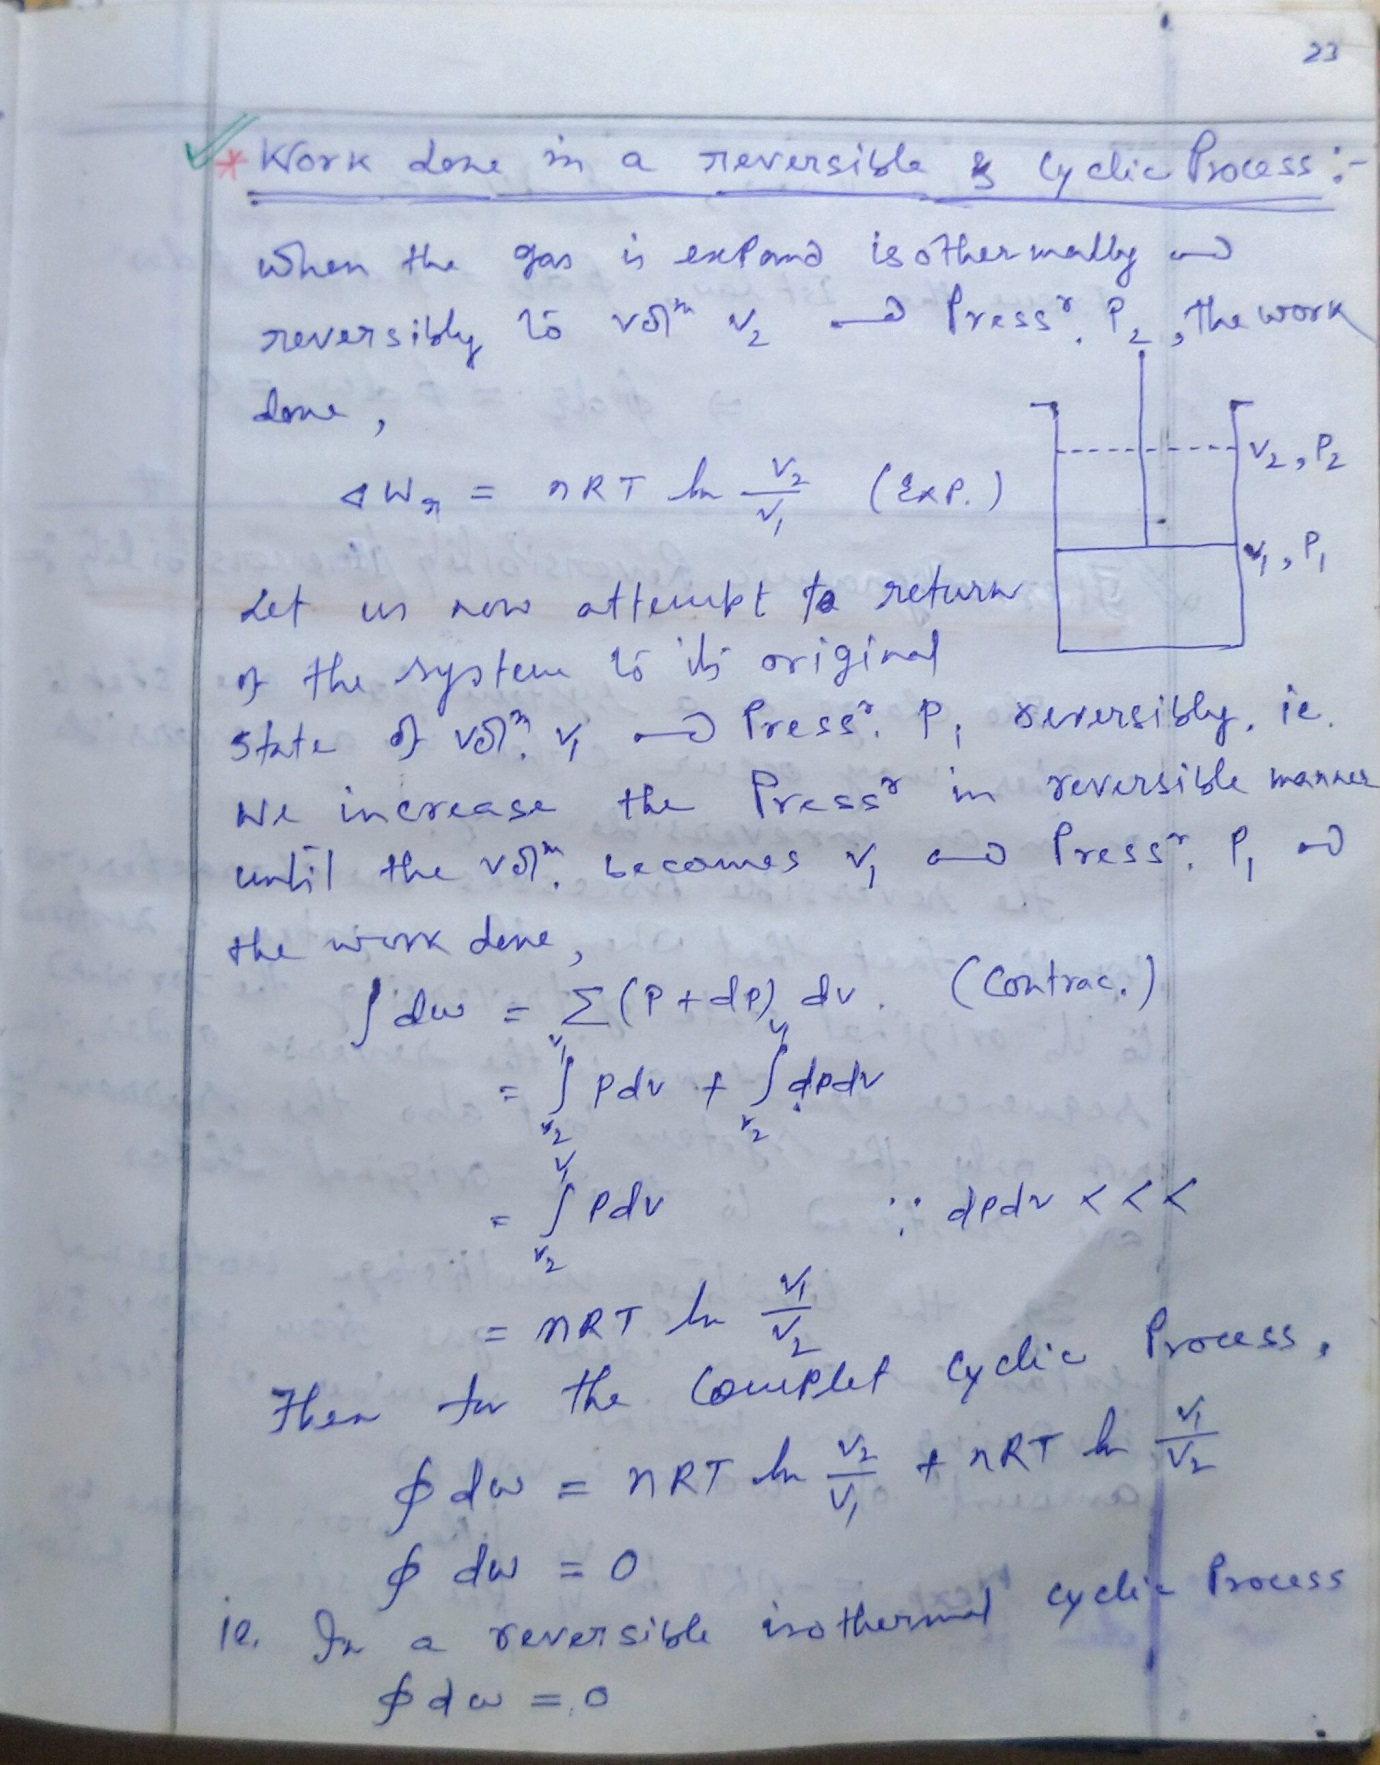 23
* Work done in a reversible & Cyclic Process :-
When the gas is expand isothermally and
reversibly to volm V2 and Pressr. P2, the work
done,
V2, P2
ΔWr = nRT ln V2/V1 (Exp.)
V1, P1
Let us now attempt to return
of the system to its original
state of volm. V1 and Pressr. P1 reversibly. ie.
we increase the Pressr in reversible manner
until the volm. becomes V1 and Pressr. P1 and
the work done,
∫dw = Σ(P+dP) dv. (Contrac.)
= ∫_{V2}^{V1} Pdv + ∫_{V2}^{V1} dPdv
= ∫_{V2}^{V1} Pdv ∵ dPdv <<<
= nRT ln V1/V2
Then for the Complet Cyclic Process,
∮dw = nRT ln V2/V1 + nRT ln V1/V2
∮ dw = 0
ie. In a reversible isothermal cyclic Process
∮dw = 0